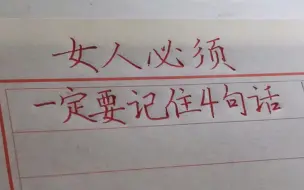 女人必须
一定要记住4句话